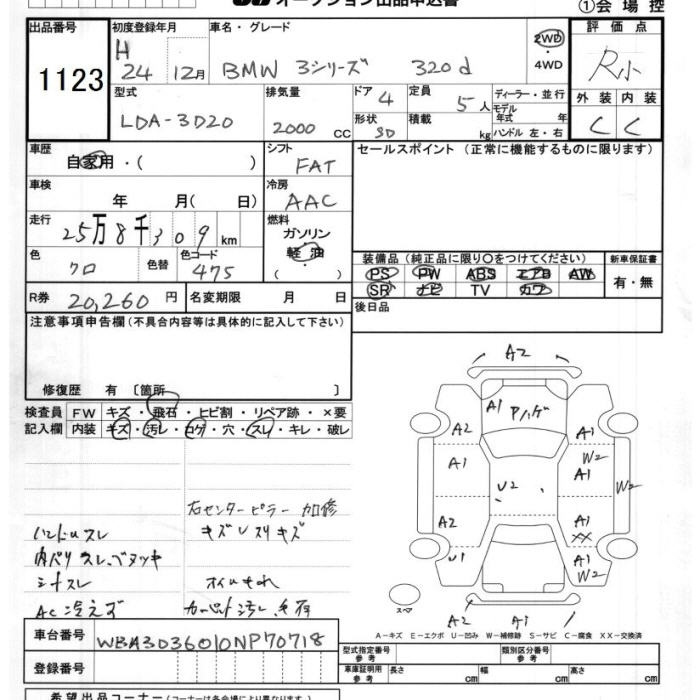 オークション出品申込書
①会場控
出品番号
1123
初度登録年月
H 24 12月
車名・グレード
BMW 3シリーズ 320d
2WD
・4WD
評価点
R小
外装 内装
C C
型式
LDA-3D20
排気量
2000 CC
ドア 4
形状 SD
定員 5人
積載 kg
ディーラー・並行
モデル年式 年
ハンドル 左・右
車歴
自家用・( )
シフト
FAT
セールスポイント (正常に機能するものに限ります)
車検
年 月( 日)
冷房
AAC
走行
25万8千309km
燃料
ガソリン
軽油
( )
色
クロ
色替
色コード
475
装備品 (純正品に限り〇をつけてください)
PS PW ABS エアB AW
SR ナビ TV カワ
新車保証書
有・無
R券 20,260円
名変期限 月 日
後日品
注意事項申告欄 (不具合内容等は具体的に記入して下さい)
修復歴 有 〔箇所 〕
検査員記入欄
FW キズ・飛石・ヒビ割・リペア跡・×要
内装 キズ・汚レ・コゲ・穴・スレ・キレ・破レ
右センターピラー加修
ハンドルスレ
キズレスリキズ
シートスレ
AC冷えず
A2
A1
A2
A1
A1
W2
A1
W2
U2
A2
A1
XX
U1
A1
W2
スペア
A2 A1
A-キズ E-エクボ U-凹み W-補修跡 S-サビ C-腐食 XX-交換済
車台番号
WBA3D36010NP70718
登録番号
型式指定番号
参考
類別区分番号
参考
車庫証明用
参考
長さ cm 幅 cm 高さ cm
希望出品コーナー (コーナーは各会場により異なります)